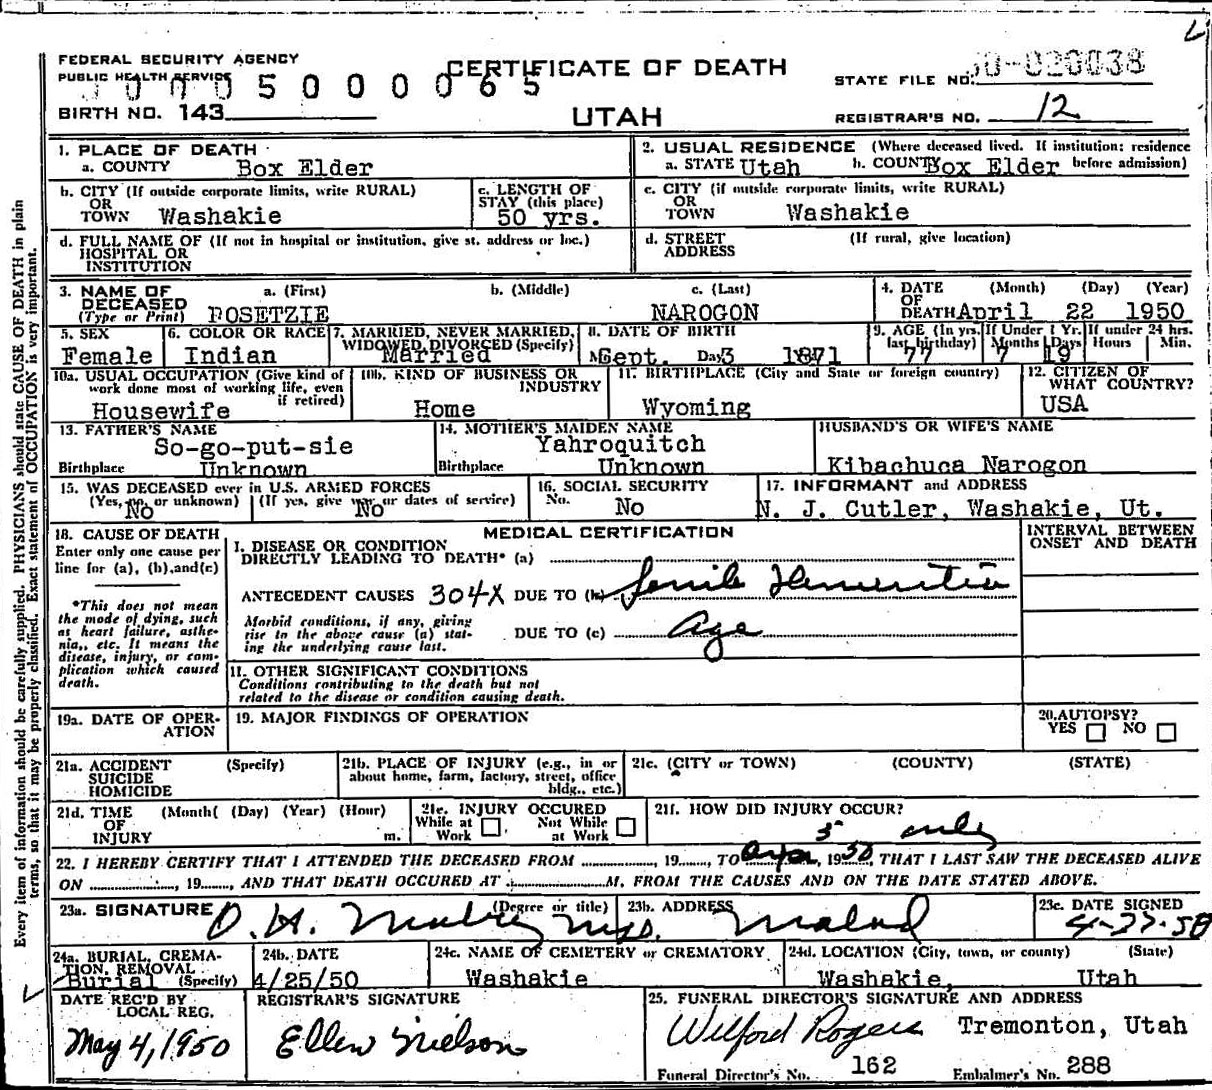 FEDERAL SECURITY AGENCY
PUBLIC HEALTH SERVICE
5 0 0 0 0 6 5
CERTIFICATE OF DEATH
STATE FILE NO. 50-020038
BIRTH NO. 143
UTAH
REGISTRAR'S NO. 12
1. PLACE OF DEATH
a. COUNTY Box Elder
2. USUAL RESIDENCE (Where deceased lived. If institution: residence before admission)
a. STATE Utah b. COUNTY Box Elder
b. CITY (If outside corporate limits, write RURAL) OR TOWN Washakie
c. LENGTH OF STAY (this place) 50 yrs.
c. CITY (if outside corporate limits, write RURAL) OR TOWN Washakie
d. FULL NAME OF (If not in hospital or institution, give st. address or loc.) HOSPITAL OR INSTITUTION
d. STREET ADDRESS (If rural, give location)
3. NAME OF DECEASED (Type or Print)
a. (First) POSETZIE
b. (Middle)
c. (Last) NAROGON
4. DATE OF DEATH (Month) (Day) (Year)
April 22 1950
5. SEX Female
6. COLOR OR RACE Indian
7. MARRIED, NEVER MARRIED, WIDOWED, DIVORCED (Specify) Married
8. DATE OF BIRTH Sept. Day 3 1871
9. AGE (In yrs. last birthday) 77
If Under 1 Yr. Months 7 Days 19
If under 24 hrs. Hours Min.
10a. USUAL OCCUPATION (Give kind of work done most of working life, even if retired) Housewife
10b. KIND OF BUSINESS OR INDUSTRY Home
11. BIRTHPLACE (City and State or foreign country) Wyoming
12. CITIZEN OF WHAT COUNTRY? USA
13. FATHER'S NAME So-go-put-sie
Birthplace Unknown
14. MOTHER'S MAIDEN NAME Yahroquitch
Birthplace Unknown
HUSBAND'S OR WIFE'S NAME
Kibachuca Narogon
15. WAS DECEASED ever in U.S. ARMED FORCES
(Yes, no, or unknown) No
(If yes, give war or dates of service) No
16. SOCIAL SECURITY No. No
17. INFORMANT and ADDRESS
N. J. Cutler, Washakie, Ut.
18. CAUSE OF DEATH
Enter only one cause per line for (a), (b), and (c)
*This does not mean the mode of dying, such as heart failure, asthenia, etc. It means the disease, injury, or complication which caused death.
MEDICAL CERTIFICATION
INTERVAL BETWEEN ONSET AND DEATH
I. DISEASE OR CONDITION DIRECTLY LEADING TO DEATH* (a)
ANTECEDENT CAUSES 304X DUE TO (b) Senile Dementia
Morbid conditions, if any, giving rise to the above cause (a) stating the underlying cause last.
DUE TO (c) Age
II. OTHER SIGNIFICANT CONDITIONS
Conditions contributing to the death but not related to the disease or condition causing death.
19a. DATE OF OPERATION
19. MAJOR FINDINGS OF OPERATION
20. AUTOPSY?
YES NO
21a. ACCIDENT SUICIDE HOMICIDE (Specify)
21b. PLACE OF INJURY (e.g., in or about home, farm, factory, street, office bldg., etc.)
21c. (CITY or TOWN) (COUNTY) (STATE)
21d. TIME OF INJURY (Month( (Day) (Year) (Hour) m.
21e. INJURY OCCURED
While at Work Not While at Work
21f. HOW DID INJURY OCCUR?
5 only
22. I HEREBY CERTIFY THAT I ATTENDED THE DECEASED FROM , 19 , TO Apr , 1950, THAT I LAST SAW THE DECEASED ALIVE
ON , 19 , AND THAT DEATH OCCURED AT M. FROM THE CAUSES AND ON THE DATE STATED ABOVE.
23a. SIGNATURE (Degree or title)
O. H. M.D.
23b. ADDRESS Malad
23c. DATE SIGNED 4-27-50
24a. BURIAL, CREMATION, REMOVAL (Specify) Burial
24b. DATE 4/25/50
24c. NAME OF CEMETERY or CREMATORY Washakie
24d. LOCATION (City, town, or county) (State)
Washakie, Utah
DATE REC'D BY LOCAL REG. May 4, 1950
REGISTRAR'S SIGNATURE
Ellen Nielson
25. FUNERAL DIRECTOR'S SIGNATURE AND ADDRESS
Wilford Rogers Tremonton, Utah
Funeral Director's No. 162 Embalmer's No. 288
Every item of information should be carefully supplied. PHYSICIANS should state CAUSE OF DEATH in plain
terms, so that it may be properly classified. Exact statement of OCCUPATION is very important.